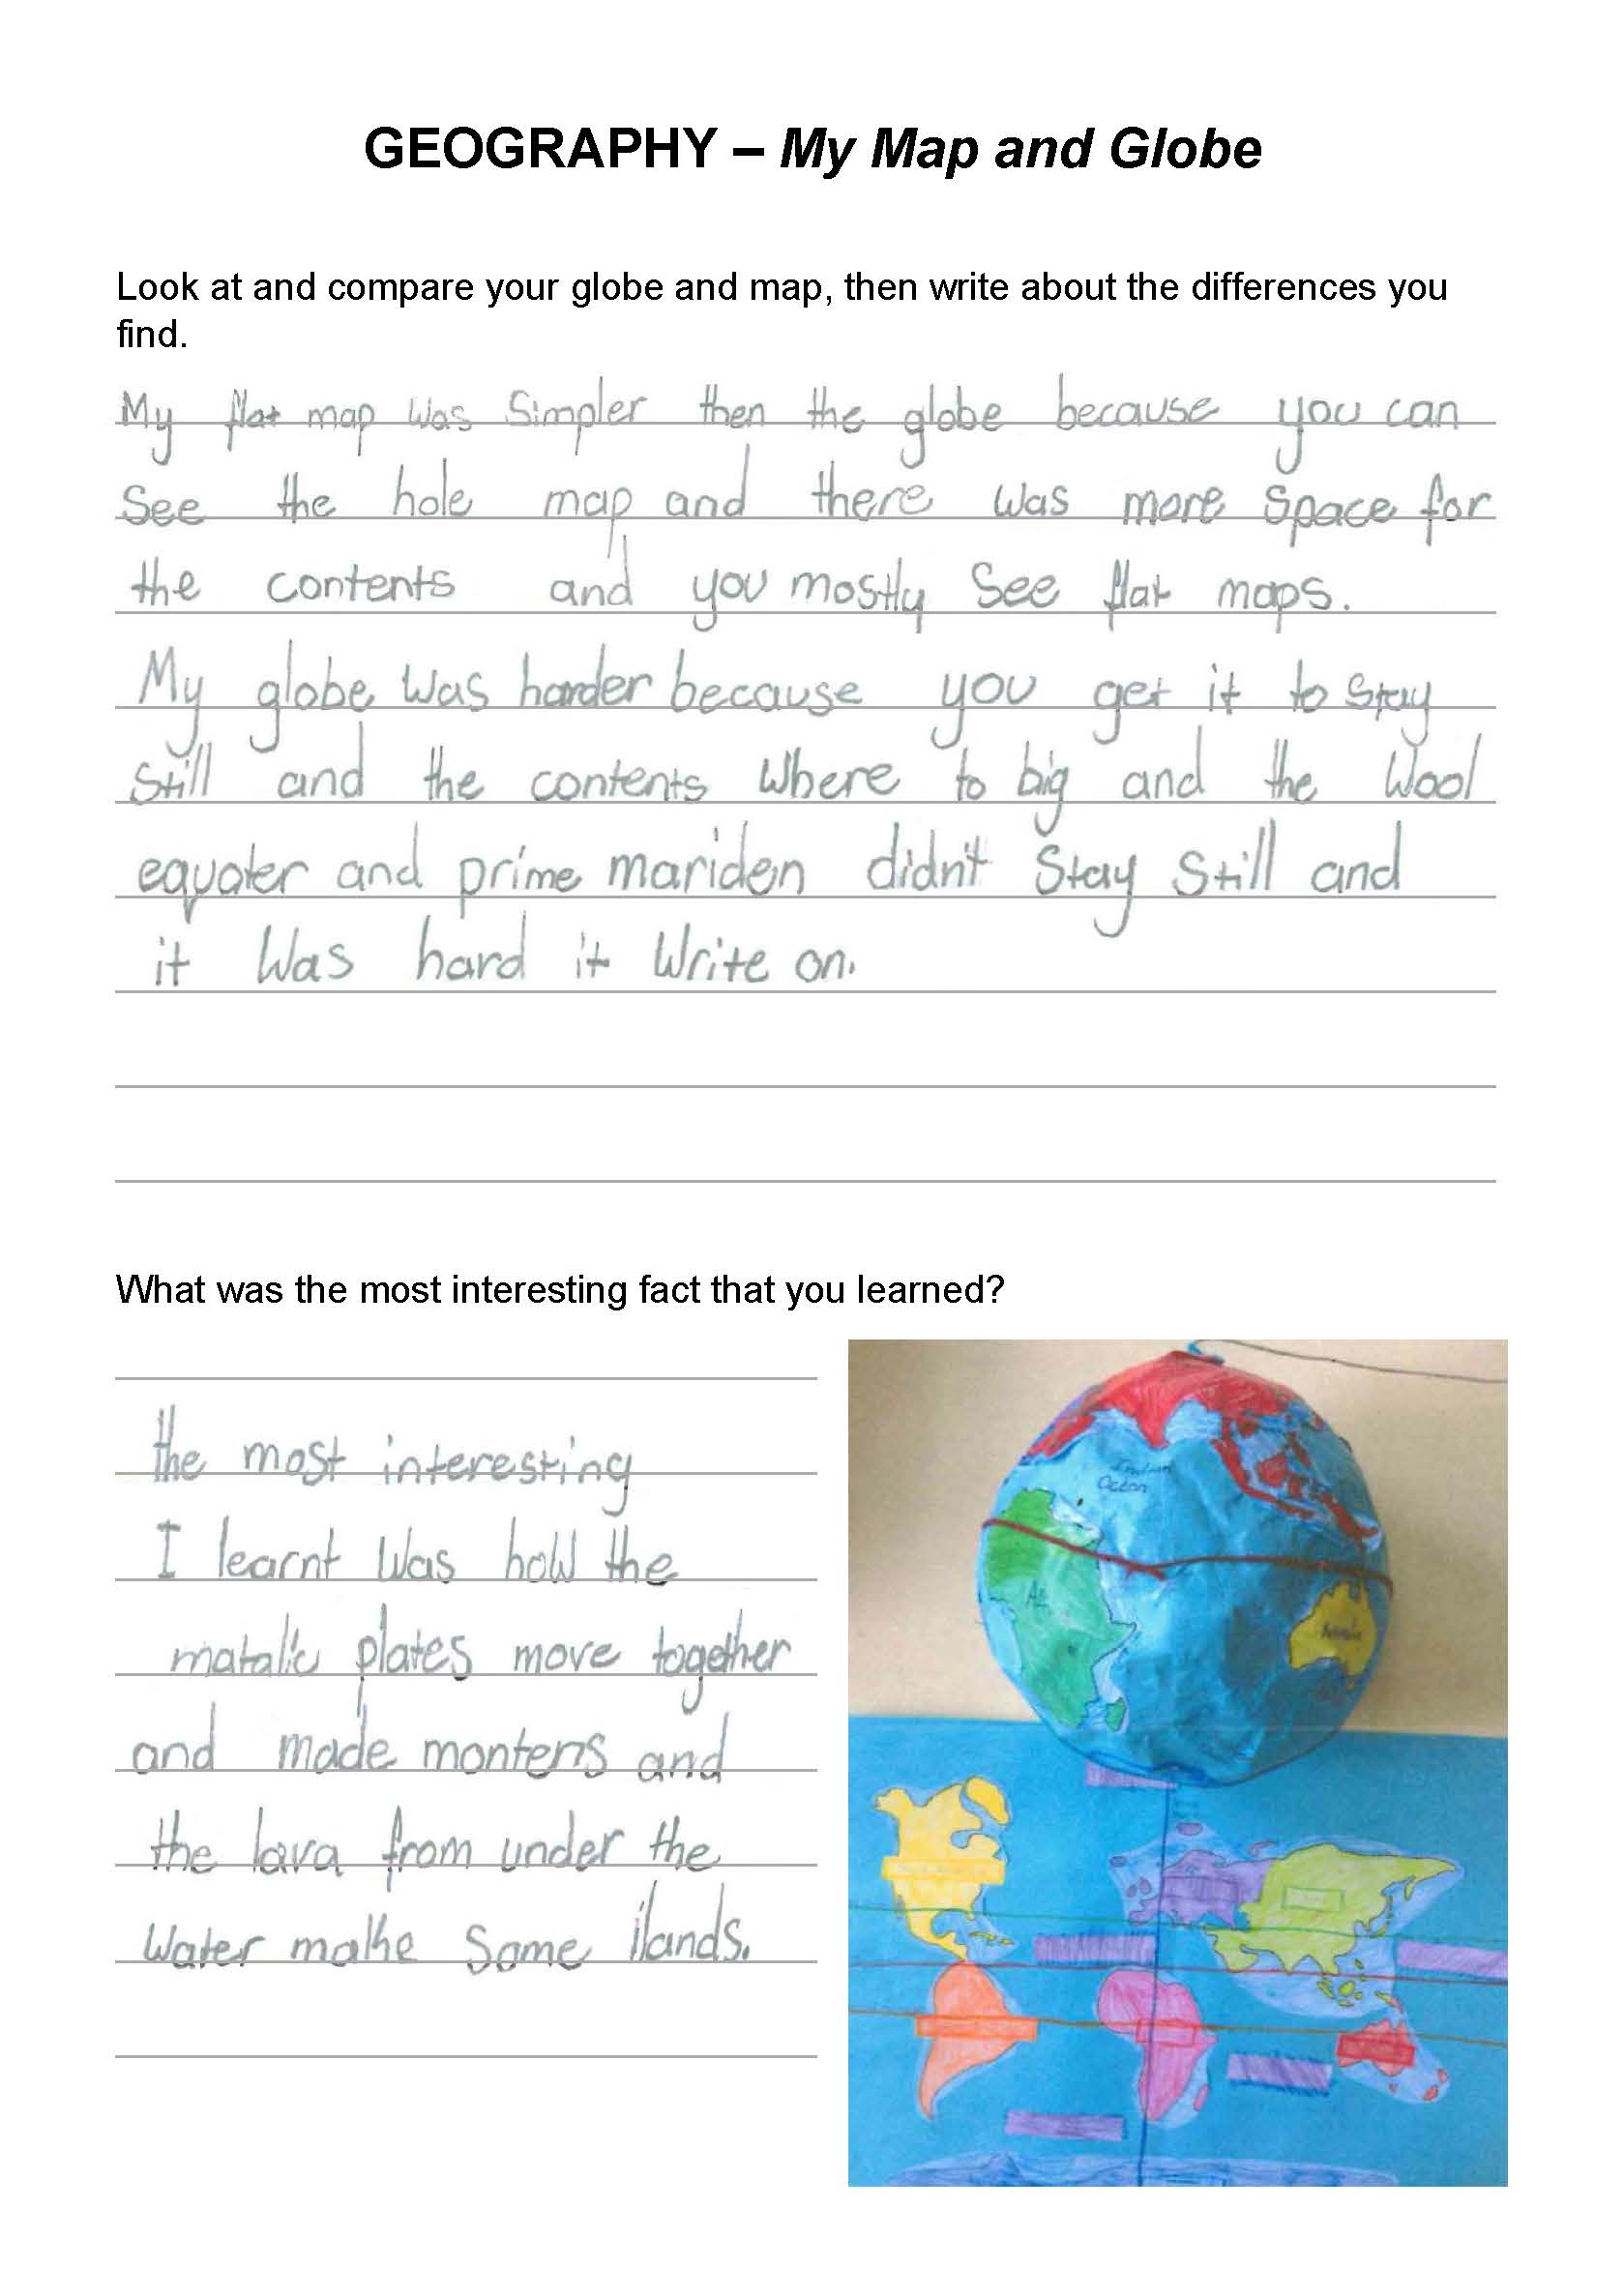 GEOGRAPHY – My Map and Globe
Look at and compare your globe and map, then write about the differences you
find.
My flat map was Simpler then the globe because you can
See the hole map and there was more space for
the contents and you mostly see flat maps.
My globe was harder because you get it to stay
still and the contents where to big and the wool
equater and prime mariden didn't stay still and
it was hard it write on.
What was the most interesting fact that you learned?
the most interesting
I learnt was how the
matalic plates move together
and made montens and
the lava from under the
water make some ilands.
Indian
Ocean